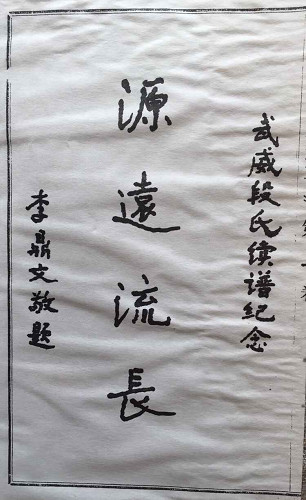 武威段氏续谱纪念
源遠流長
李鼎文敬题